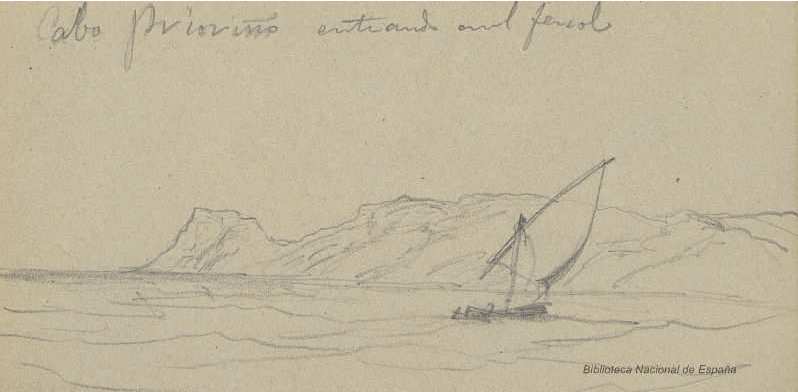 Cabo prioriño entrando en el ferrol
Biblioteca Nacional de España